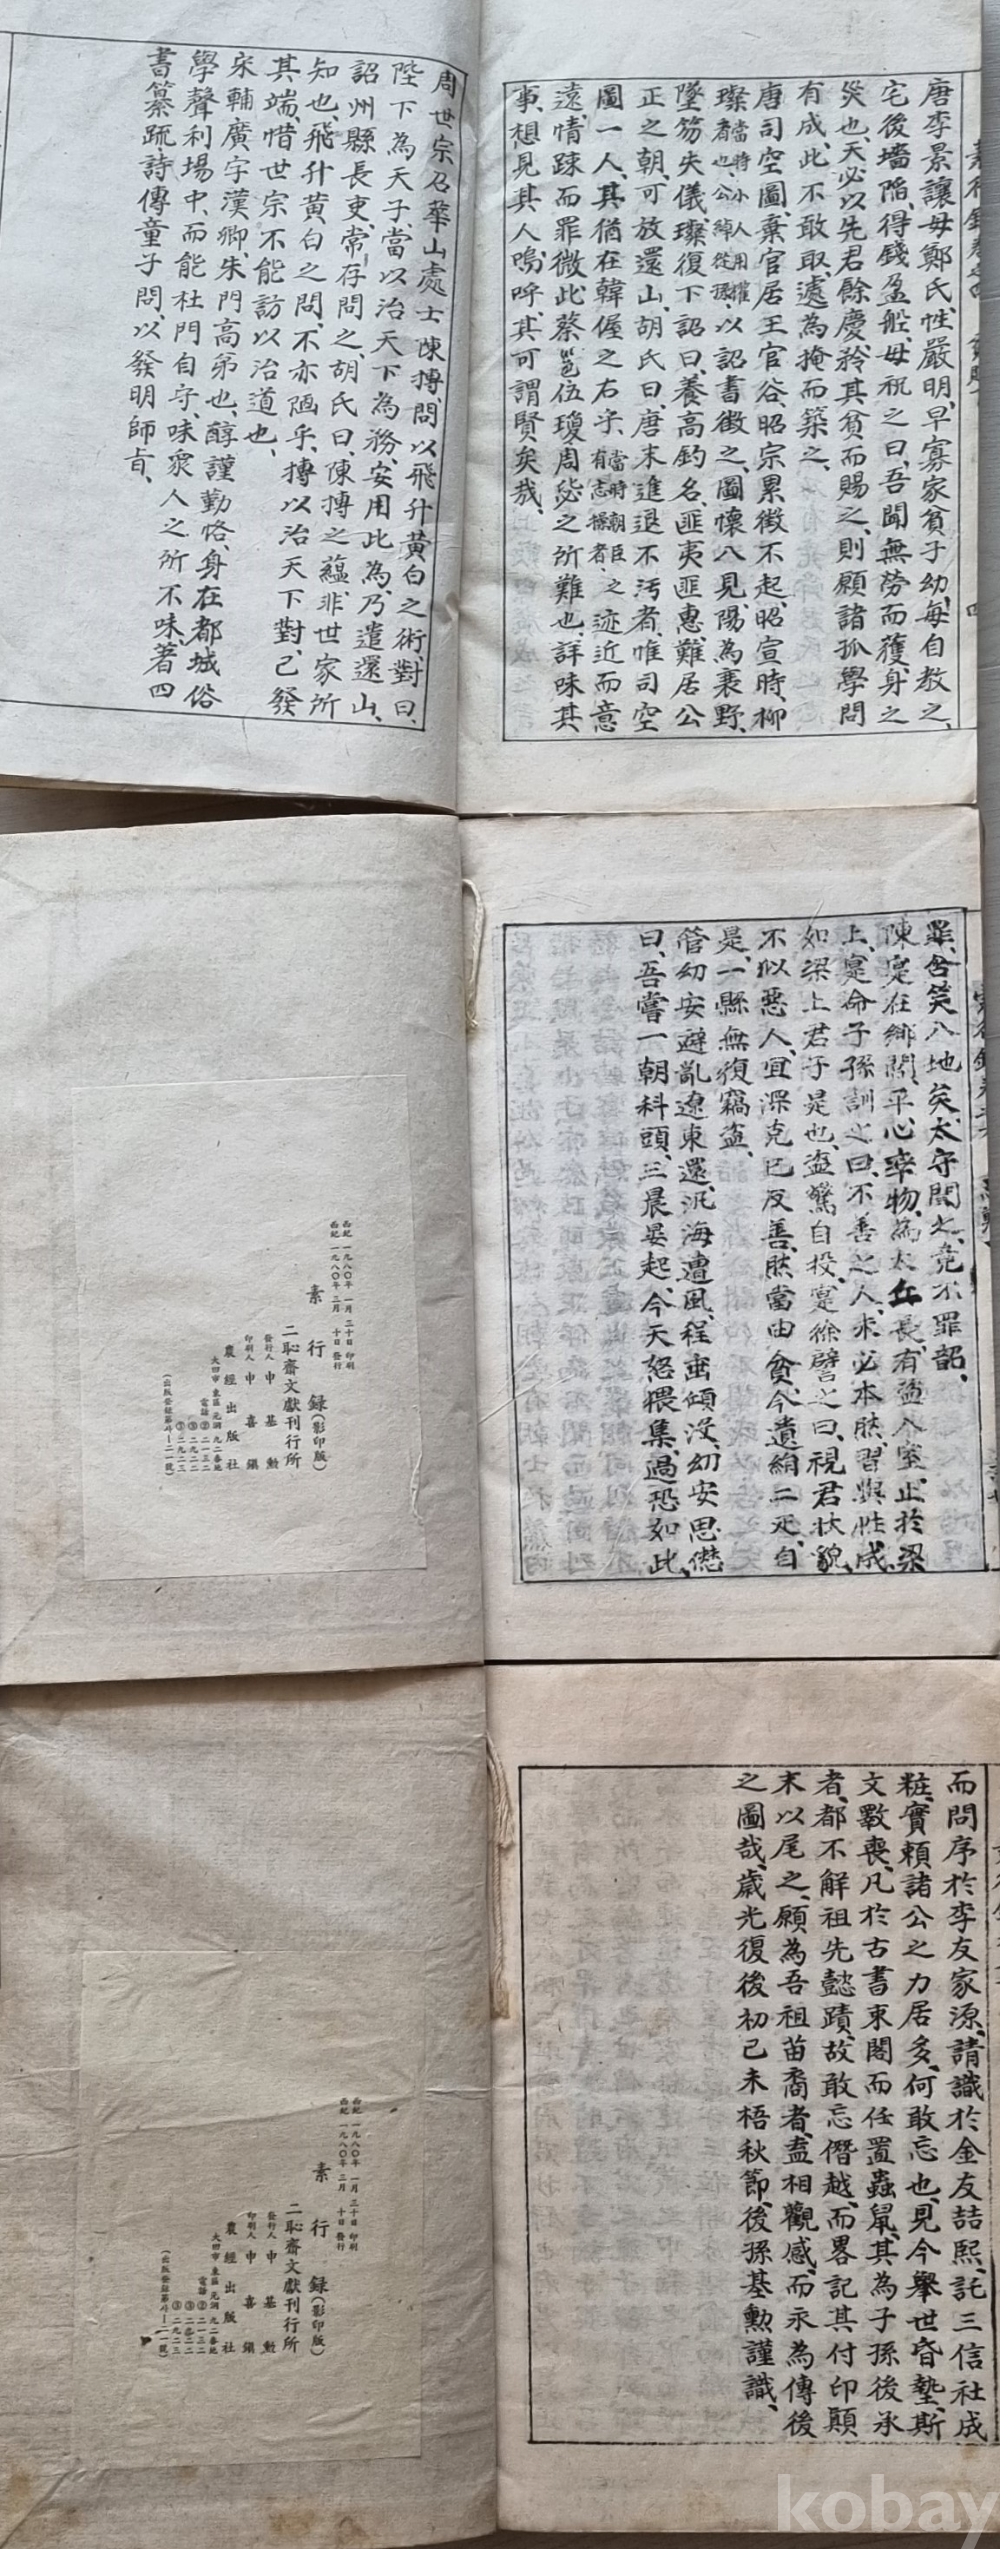 唐李景讓母鄭氏、性嚴明、早寡家貧子幼、每自教之、
宅後墻陷、得錢盈船、母祝之曰、吾聞無勞而獲、身之
災也、天必以先君餘慶、矜其貧而賜之、則願諸孤學問
有成、此不敢取、遽為掩而築之、
唐司空圖、棄官居王官谷、昭宗累徵不起、昭宣時、柳
璨當時小人用權者也、公綽從孫、以詔書徵之、圖懼入見、陽為衰野、
墜笏失儀、璨復下詔曰、養高釣名、匪夷匪惠、難居公
正之朝、可放還山、胡氏曰、唐末進退不汚者、惟司空
圖一人、其猶在韓偓之右乎、當時朝臣有志操者、之迹近而意
遠、情踈而罪微、此蔡邕伍瓊周毖之所難也、詳味其
事、想見其人、嗚呼、其可謂賢矣哉、
周世宗召華山處士陳摶、問以飛升黃白之術、對曰、
陛下為天子、當以治天下為務、安用此為、乃遣還山、
詔州縣長吏、常存問之、胡氏曰、陳摶之蘊、非世家所
知也、飛升黃白之問、不亦陋乎、摶以治天下對、已發
其端、惜世宗不能訪以治道也、
宋輔廣字漢卿、朱門高弟也、醇謹勤恪、身在都城俗
學聲利場中、而能杜門自守、味衆人之所不味、著四
書纂疏詩傳童子問、以發明師旨、
罪、含笑入地矣、太守聞之、竟不罪韶、
陳寔在鄉閭、平心率物、為太丘長、有盜入室、止於梁
上、寔命子孫訓之曰、不善之人、未必本然、習與性成、
如梁上君子是也、盜驚自投、寔徐譬之曰、視君狀貌、
不似惡人、宜深克己反善、然當由貧、今遺絹二疋、自
是、一縣無復竊盜、
管幼安避亂遼東還、汎海遭風、程出傾沒、幼安思愆
曰、吾嘗一朝科頭、三晨晏起、今天怒猥集、過恐如此、
西紀 一九八〇年 一月 三十日 印刷
西紀 一九八〇年 二月 十日 發行
素行錄(影印版)
二恥齋文獻刊行所
發行人 申基勳
印刷人 申喜鎭
農經出版社
大田市 東區 元洞 九二番地
而問序於李友家源、請識於金友喆熙、託三信社成
粧、實賴諸公之力居多、何敢忘也、見今舉世昏墊、斯
文斁喪、凡於古書束閣而任置蟲鼠、其為子孫後承
者、都不解祖先懿蹟、故敢忘僭越、而畧記其付印顚
末以尾之、願為吾祖苗裔者、盍相觀感、而永為傳後
之圖哉、歲光復後初己未梧秋節、後孫基勳謹識、
西紀 一九八〇年 一月 三十日 印刷
西紀 一九八〇年 二月 十日 發行
素行錄(影印版)
二恥齋文獻刊行所
發行人 申基勳
印刷人 申喜鎭
農經出版社
大田市 東區 元洞 九二番地
kobay